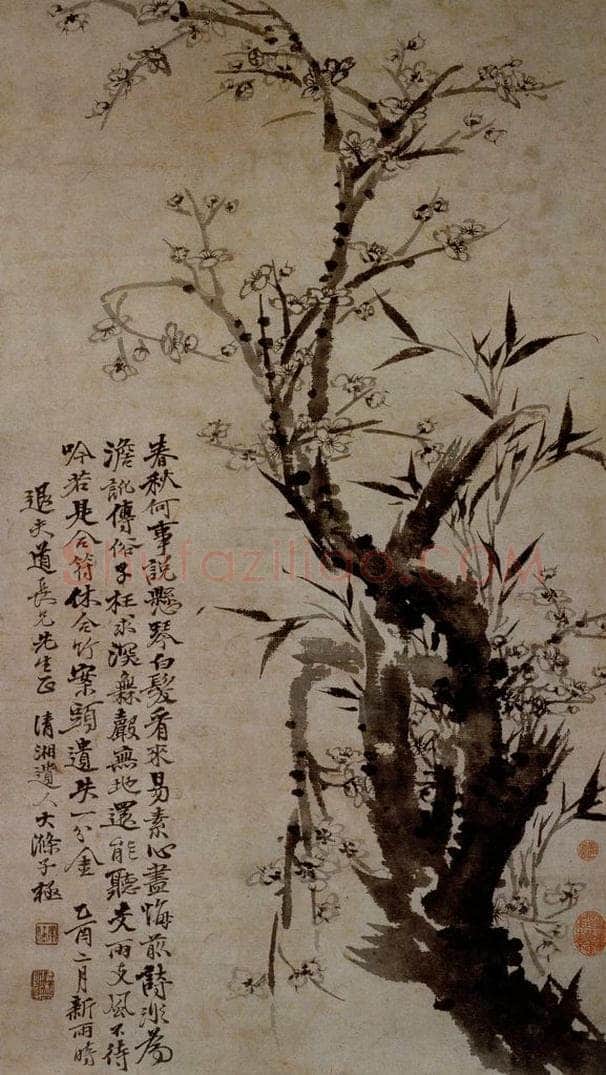 春秋何事說懸琴白髮看來易素心盡悔前詩淡為
澹訛傳俗子枉求深無聲無地還能聽支雨支風不待
吟若是合符休合竹案頭遺失一分金乙酉二月新雨時
退夫道長兄先生正清湘遺人大滌子極
Shufaziliao.COM